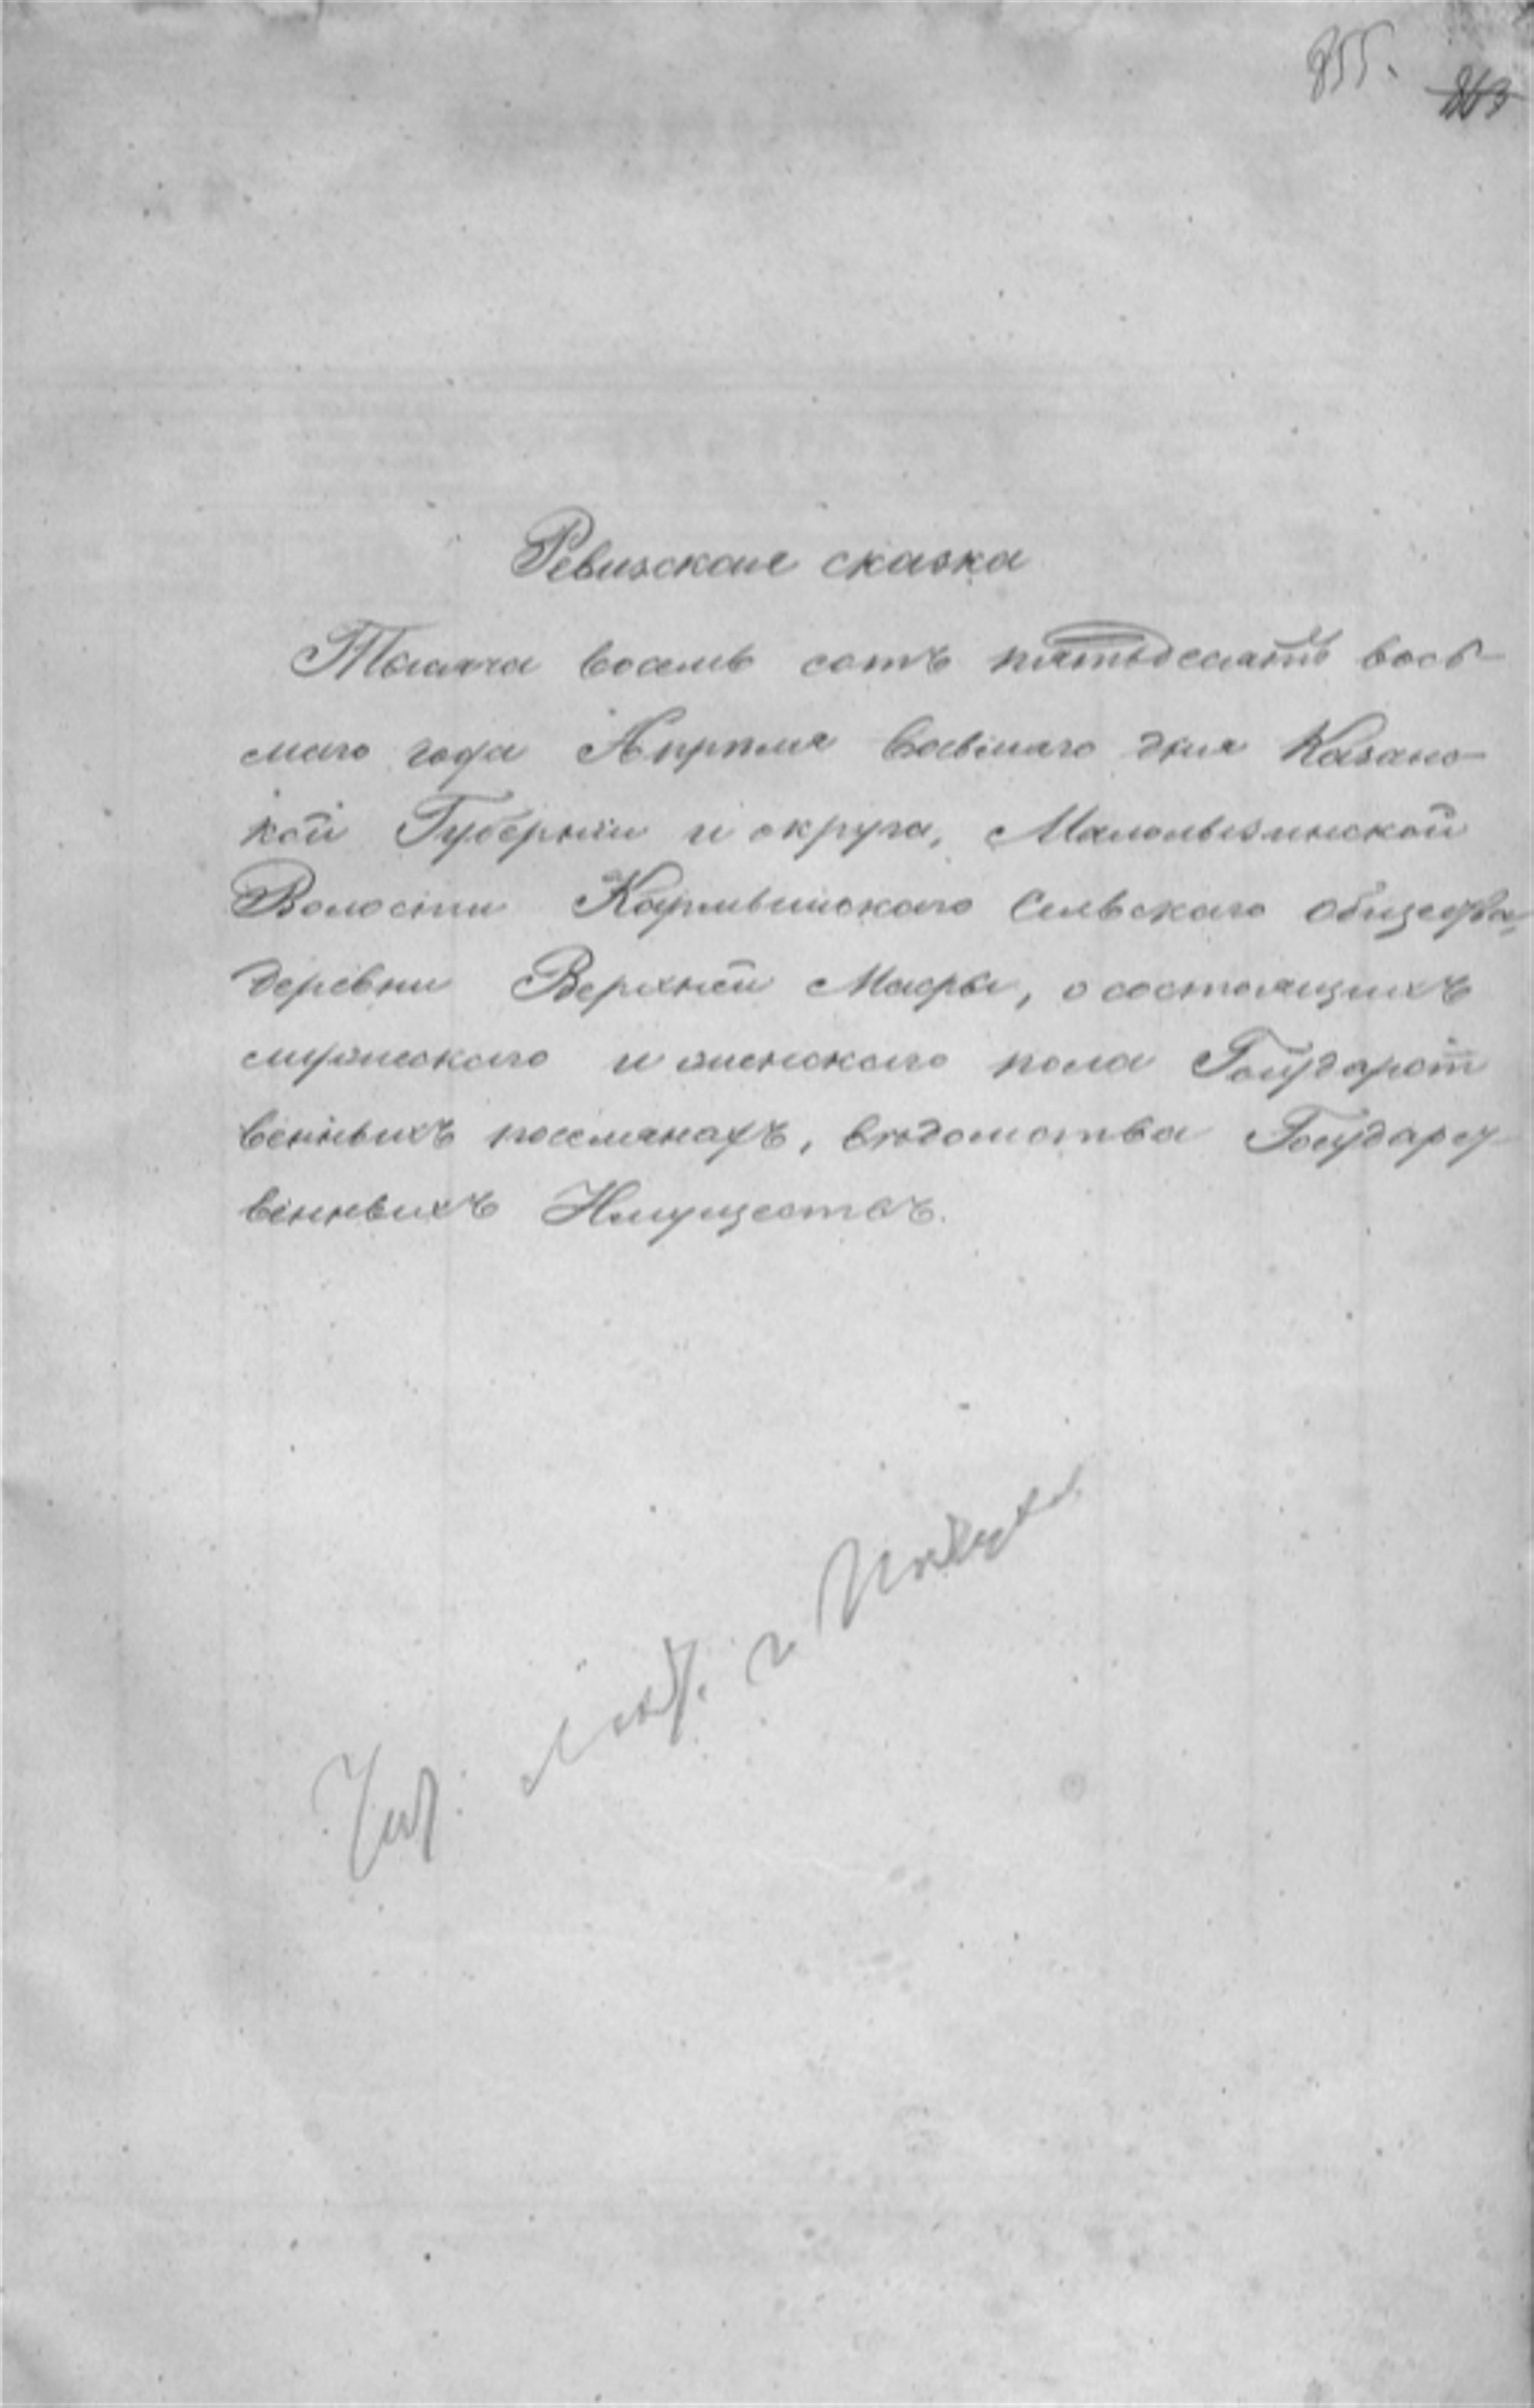 855.
263
Ревизская сказка
Тысяча восемь сотъ пятьдесятъ вось-
маго года Апрѣля восьмаго дня Казанс-
кой Губерніи и округа, 
Волости Сельскаго общества,
деревни Верхней Масры, о состоящихъ
мужескаго и женскаго пола Государст
венныхъ поселянахъ, вѣдомства Государст
венныхъ Имуществъ.